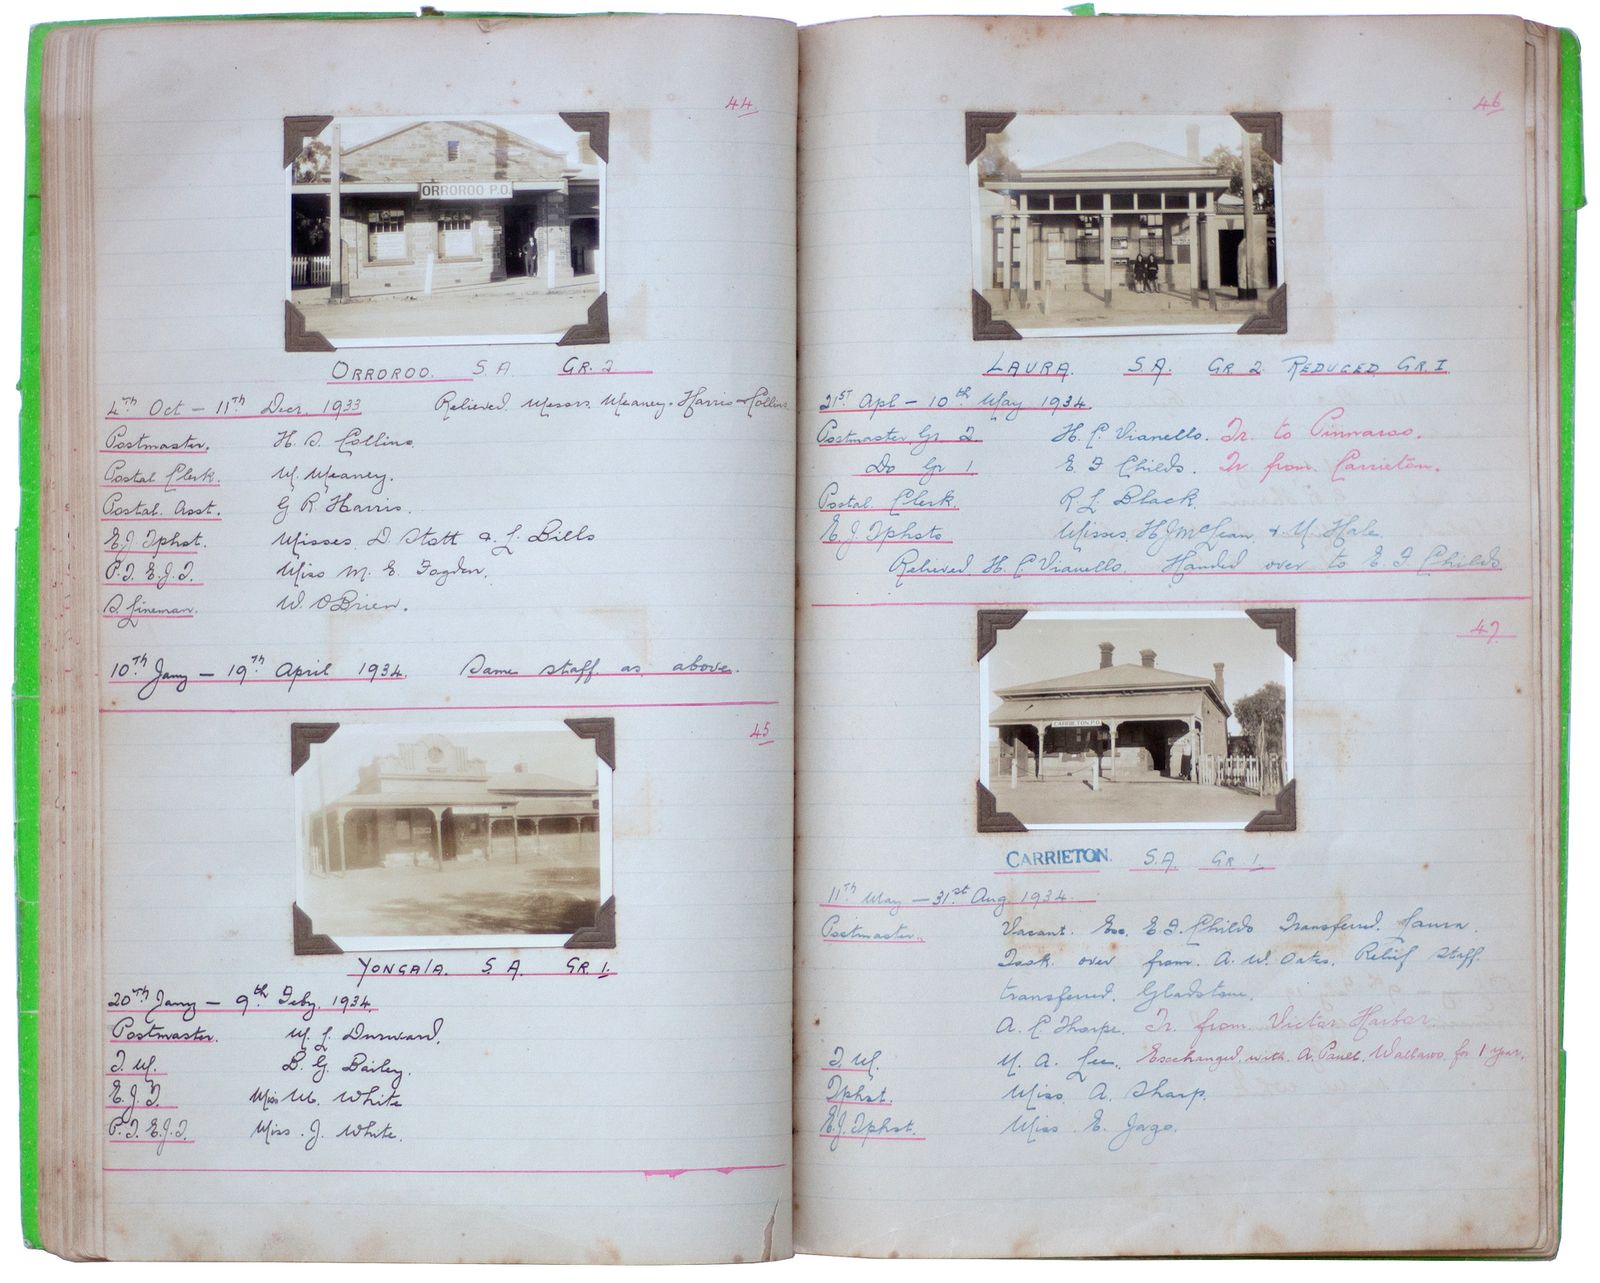 44.
ORROROO P.O.
ORROROO. S.A GR. 2.
4TH Oct – 11TH Decr. 1933 Relieved Messrs. Meaney. Harris & Collins
Postmaster. H. S. Collins
Postal Clerk. M. Meaney.
Postal Asst. G R Harris.
E.J. Tphst. Misses. D Stott & L. Bills
P.T. E.J.T. Miss M. E. Fogden.
S Lineman. W. O'Brien.
10TH Jany – 19TH April 1934. Same staff as above.
45
YONGALA. S.A. GR 1.
20TH Jany – 9th Feby. 1934.
Postmaster. M. L. Durward.
T.M. B. G. Bailey.
E.J.T. Miss M. White
P.T. E.J.T. Miss. J. White.
46
LAURA. S.A. GR 2 REDUCED GR. I
21ST Apl – 10th May 1934.
Postmaster Gr. 2. H. C. Vianello. Tr. to Pinnaroo.
Do Gr 1. E F Childs. Tr from Carrieton.
Postal Clerk. R L Black.
E.J. Tphsts Misses. H J McLean & M. Hale.
Relieved H. C Vianello. Handed over to E. F Childs
47
CARRIETON P.O.
CARRIETON. S.A. GR 1.
11TH May – 31st Aug 1934.
Postmaster. Vacant. Exc. E F. Childs Transferred. Laura.
Took over from A. W. Oates. Relief Staff.
transferred. Gladstone.
A. C Thorpe. Tr. from Victor Harbor.
T.M. M. A. Lee. Exchanged with A. Pauli. Wallaroo. for 1 year.
Tphst. Miss A. Sharp.
E.J. Tphst. Miss E. Jago.